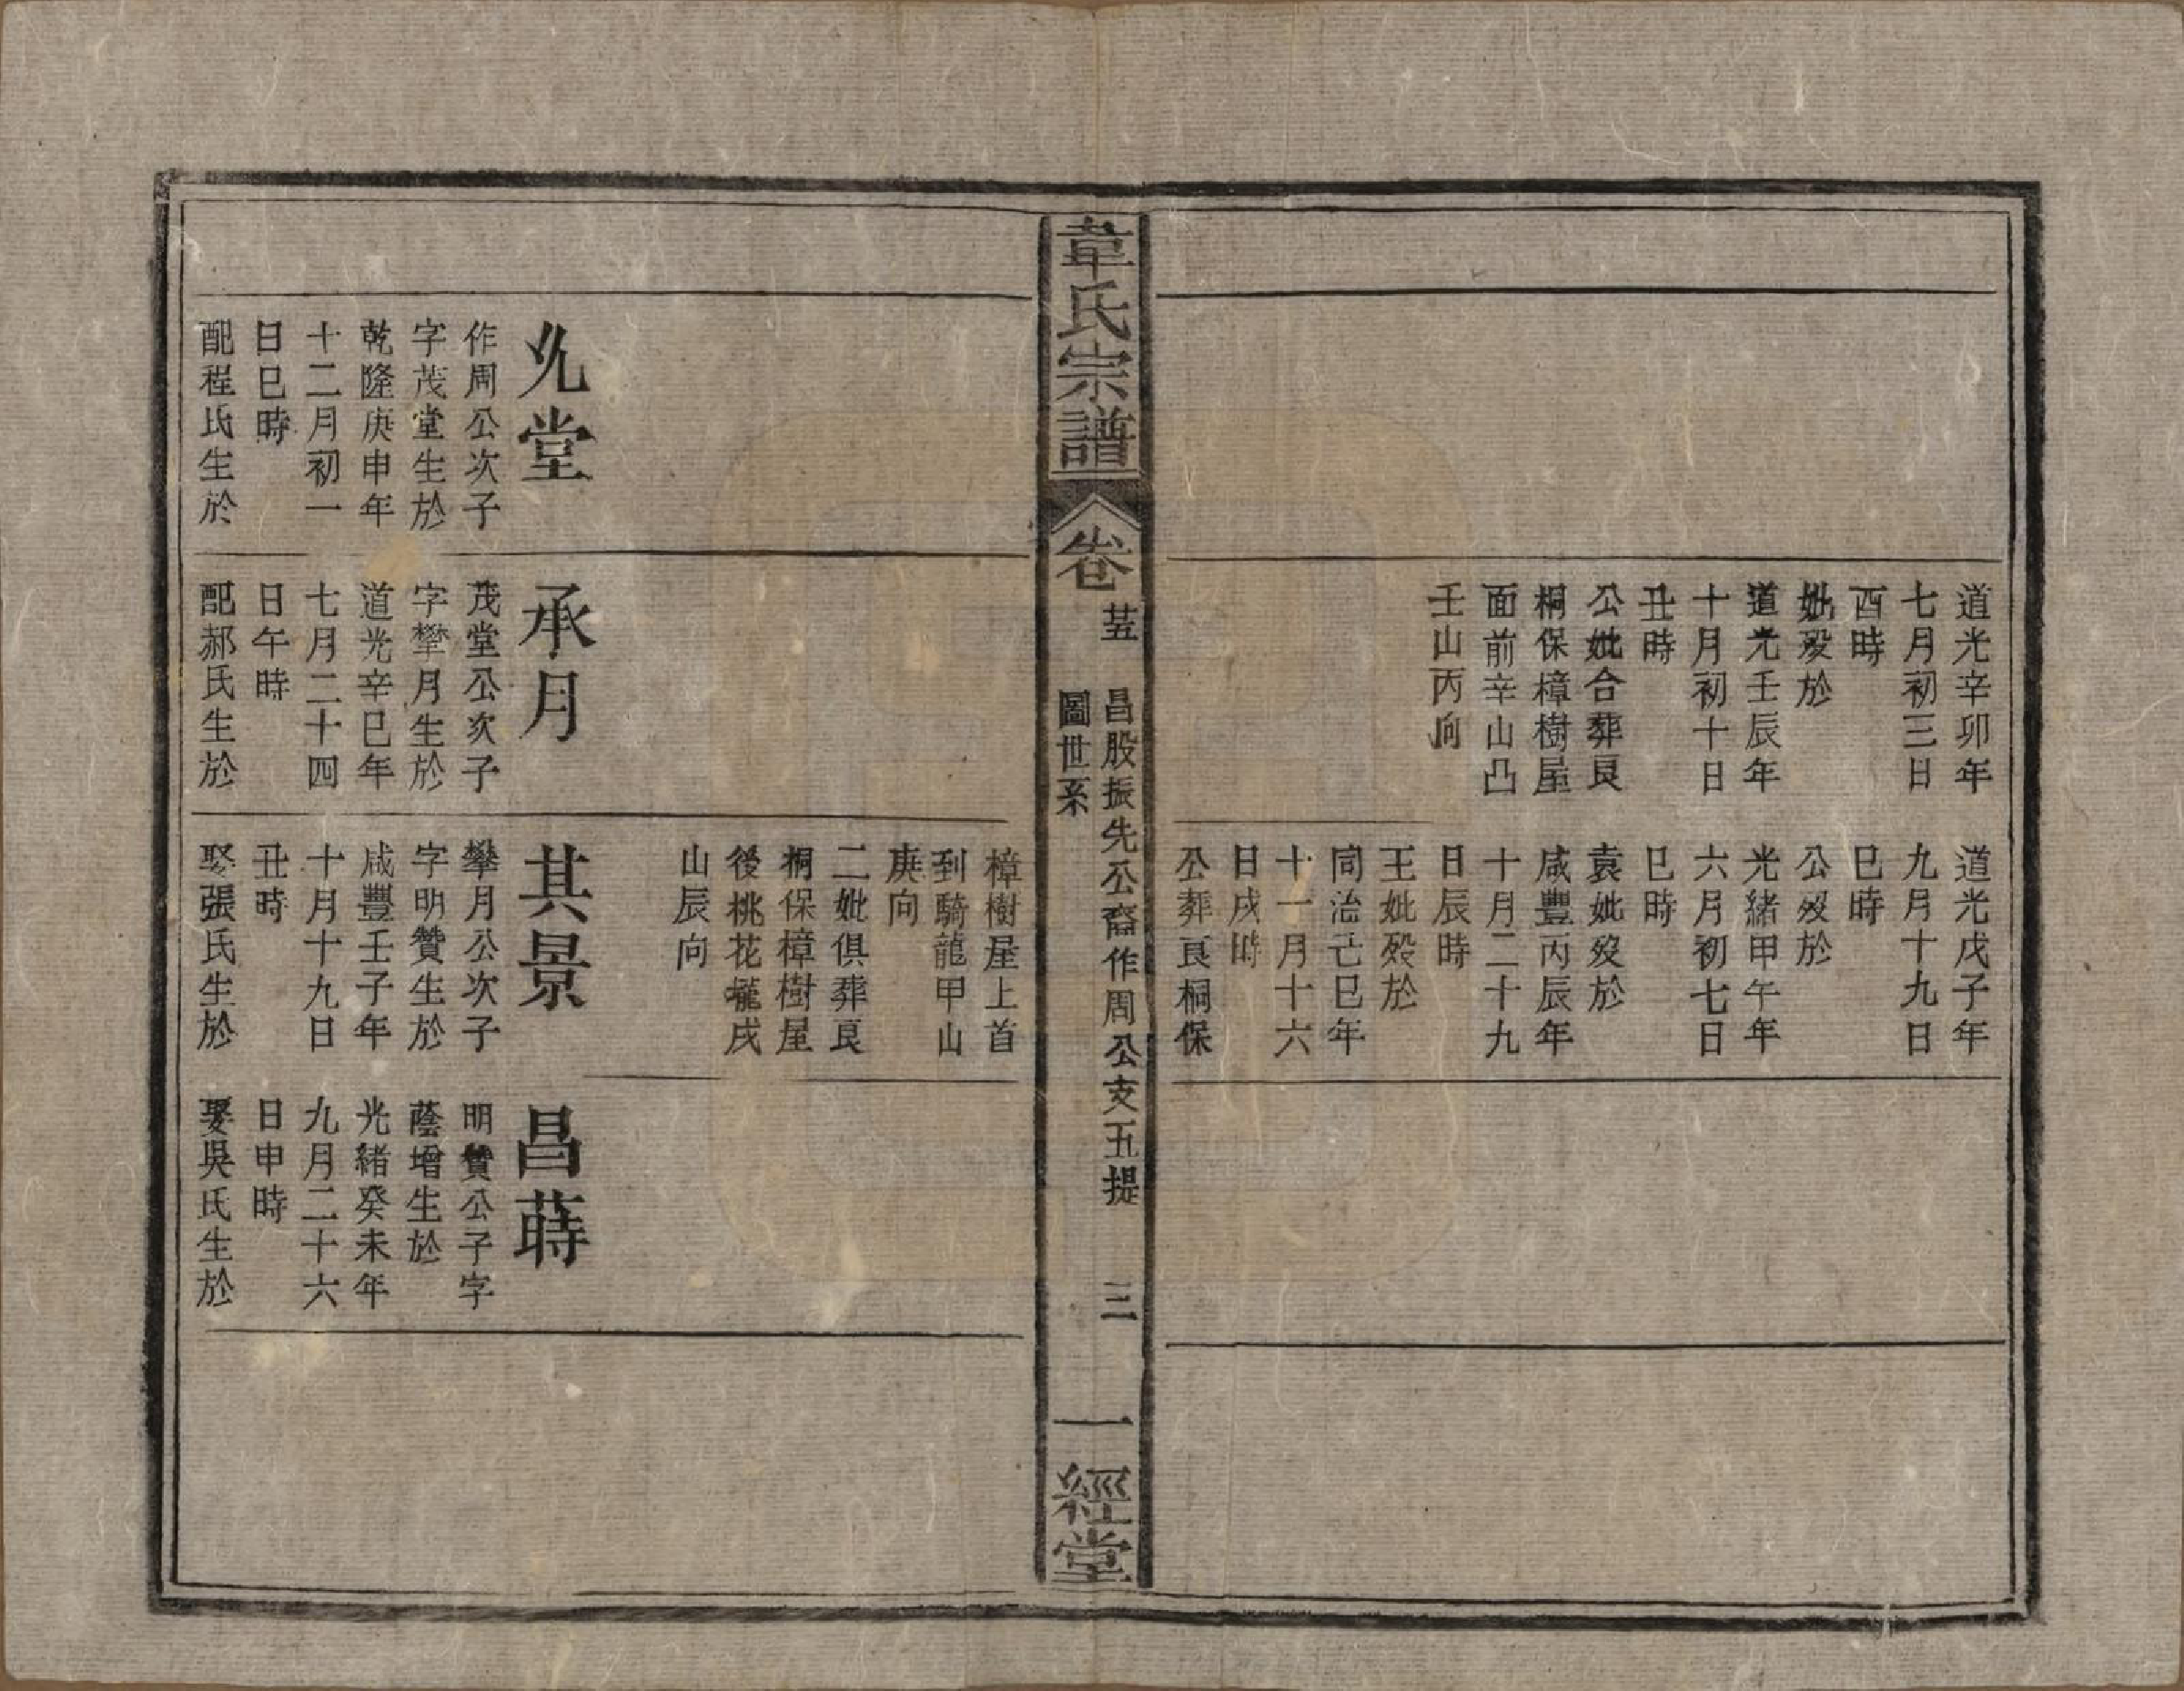 道光辛卯年
七月初三日
酉時
妣歿於
道光壬辰年
十月初十日
丑時
公妣合葬艮
桐保樟樹屋
面前辛山凸
壬山丙向
道光戊子年
九月十九日
巳時
公歿於
光緒甲午年
六月初七日
巳時
袁妣歿於
咸豐丙辰年
十月二十九
日辰時
王妣歿於
同治己巳年
十一月十六
日戌時
公葬艮桐保
韋氏宗譜
卷
昌股振先公裔作周公支五提
圖世系
三
一經堂
樟樹屋上首
到騎龍甲山
庚向
二妣俱葬艮
桐保樟樹屋
後桃花壠戌
山辰向
允堂
作周公次子
字茂堂生於
乾隆庚申年
十二月初一
日巳時
配程氏生於
承月
茂堂公次子
字攀月生於
道光辛巳年
七月二十四
日午時
配郝氏生於
其景
攀月公次子
字明贊生於
咸豐壬子年
十月十九日
丑時
娶張氏生於
昌蒔
明贊公子字
蔭增生於
光緒癸未年
九月二十六
日申時
娶吳氏生於